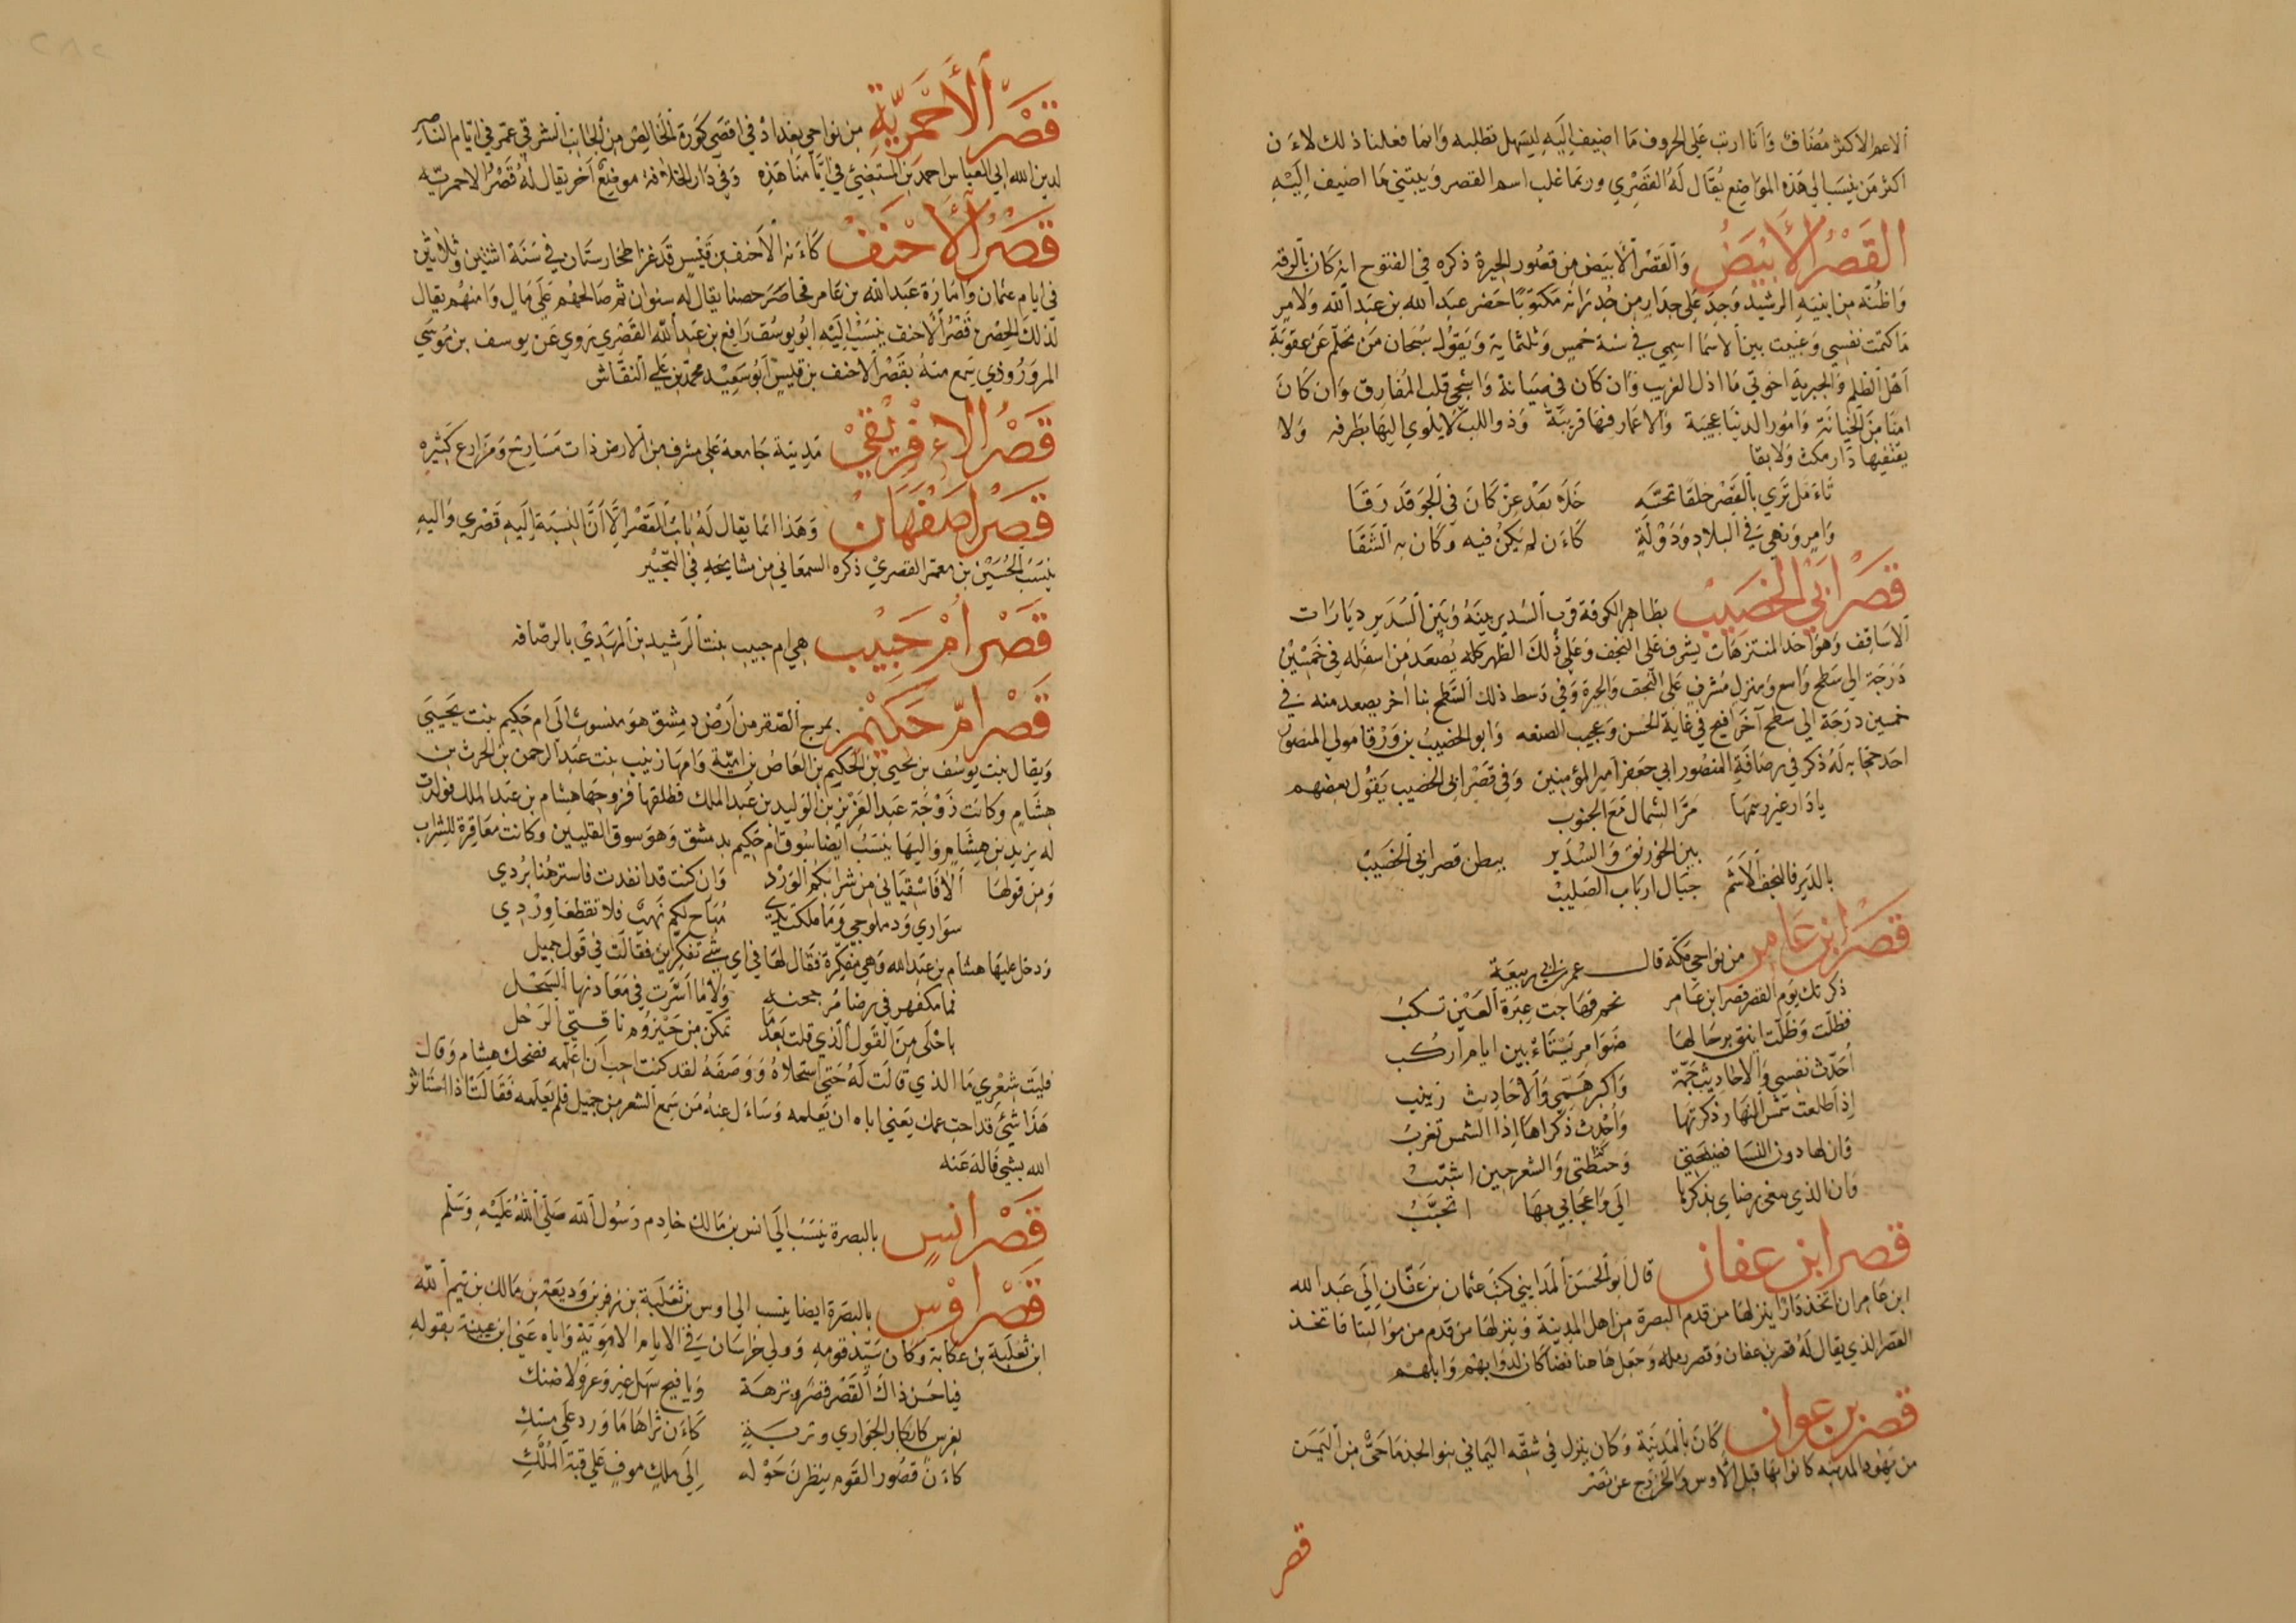 الاعم الاكثر مضاف وانا ارتب على الحروف ما اضيف اليه ليسهل تطلبه وانما فعلنا ذلك لاءن
اكثر من ينسب الي هذه المواضع يقال له القصري وربما غلب اسم القصر ويبتني ما اضيف اليه
القصر الأبيض والقصر الأبيض من قصور الحيرة ذكره في الفتوح انه كان بالرقة
واظنه من ابنيه الرشيد وجد على جدار من جدرانه مكتوبا حضر عبد الله بن عبد الله ولامر
ما كتمت نفسي وغيبت بين الاسما اسمي في سنة خمس وثلثماية ويقول سبحان من تحلم عن عقوبة
اهل الظلم والجبرية اخوتي ما اذل الغريب وان كان في صيانة واشجى قلب المفارق وان كان
امنا من الخيانة وامور الدنيا عجيبة والاعمار فيها قريبة وذو اللب لا يلوي اليها بطرفه ولا
يقتفيها دار مكث ولا بقا
تاءمل تري بالقصر خلقا تحته خلا بعد عز كان في الجو قد رقا
وامر ونهي في البلاد ودولة كاءن لم يكن فيه وكان به الشقا
قصر ابي الخصيب بظاهر الكوفة قرب السدير بينه وبين السدير ديارات
الاساقف وهو احد المنتزهات يشرف على النجف وعلى ذلك الظهر كله يصعد من اسفله في خمسين
درجة الي سطح واسع ومنزل مشرف على النجف والحيرة وفي وسط ذلك السطح بنا آخر يصعد منه في
خمسين درجة الي سطح آخر افيح في غاية الحسن وعجيب الصنعه وابو الخصيب بن ورقا مولي المنصور
احد حجابه له ذكر في رصافة المنصور ابي جعفر امير المؤمنين وفي قصر ابي الخصيب يقول بعضهم
يا دار غير رسمها مر الشمال مع الجنوب
بين الخورنق والسدير ببطن قصر ابي الخصيب
بالدير فالنجف الاشم جبال ارباب الصليب
قصر ابن عامر من نواحي مكة قال عمر بن ابي ربيعة
ذكرتك يوم القصر قصر ابن عامر بخم فهاجت عبرة العين تسكب
فظلت وظلت اينق برحالها ضوامر يستاءنين ايام اركب
أحدث نفسي والاحاديث جمة واكبر همي والاحاديث زينب
إذا طلعت شمس النهار ذكرتها وأحدث ذكراها اذا الشمس تغرب
وان لها دون النسا فصيحتي وحفظتي والشعر حين اشبب
وان الذي يبغي رضاي بذكرها الي واعجابي بها اتحبب
قصر ابن عفان قال ابو الحسن المدايني كتب عثمان بن عفان إلى عبد الله
ابن عامر ان اتخذ دارا ينزلها من قدم البصرة من اهل المدينة وينزلها من قدم من موالينا فاتخذ
القصر الذي يقال له قصر بن عفان وقصر رمله وجعل هاهنا فضا كان لدوابهم وابلهم
قصر بن عوان كان بالمدينة وكان ينزل في شقه اليماني بنو الجذما حي من اليمن
من يهود المدينه كانوا بها قبل الأوس والخزرج عن نصر
قصر
قصر الأحمرية من نواحي بغداذ في اقصي كورة الخالص من الجانب الشرقي عمر في ايام الناصر
لدين الله ابي العباس احمد بن المستضيئ في ايامنا هذه وفي دار الخلافة موضع آخر يقال له قصر الاحمرتيه
قصر الأحنف كاءنه الأحنف بن قيس قد غزا طخارستان في سنة اثنتين وثلاثين
في ايام عثمان وامارة عبد الله بن عامر فحاصر حصنا يقال له سنوان ثم صالحهم على مال وامنهم يقال
لذلك الحصن قصر الأحنف ينسب اليه ابو يوسف رافع بن عبد الله القصري يروي عن يوسف بن موسي
المروروذي سمع منه بقصر الأحنف بن قيس ابو سعيد محمد بن علي النقاش
قصر الاءفريقي مدينة جامعة على مشرف من الارض ذات مسارح ومزارع كثيره
قصر اصفهان وهذا انما يقال له باب القصر إلا أن النسبة إليه قصري واليه
ينسب الحسين بن معمر القصري ذكره السمعاني من مشايخه في التحبير
قصر ام حبيب هي ام حبيب بنت الرشيد بن المهدي بالرصافه
قصر ام حكيم بمرج الصفر من أرض دمشق هو منسوب الى ام حكيم بنت يحيي
ويقال بنت يوسف بن يحيى بن الحكيم بن العاص بن امية وامها زينب بنت عبد الرحمن بن الحرث بن
هشام وكانت زوجة عبد العزيز بن الوليد بن عبد الملك فطلقها فزوجها هشام بن عبد الملك فولدت
له يزيد بن هشام واليها ينسب ايضا سوق ام حكيم بدمشق وهو سوق القليين وكانت معاقرة للشراب
ومن قولها ألا فاسقياني من شرابكم الورد وان كنت قد انفدت فاسترهنا بردي
سواري ودملوجي وما ملكت يدي مباح لكم نهب فلا تقطعا وردي
ودخل عليها هشام بن عبد الله وهي مفكرة فقال لها في اي شئ تفكرين فقالت في قول جميل
فما مكفهر في رضا مرجحنه ولا ما اسرت في معادنها النحل
باحلى من القول الذي قلت بعد ما تمكن من حيزوم ناقتي الرحل
فليت شعري ما الذي قالت له حتى استحلاه ووصفه لقد كنت احب أن اعلمه فضحك هشام وقال
هذا شئ قد احب عمك يعني اباه ان يعلمه وساءل عنه من سمع الشعر من جميل فلم يعلمه فقالت اذا استاثر
الله بشي فاله عنه
قصر انس بالبصرة ينسب إلى انس بن مالك خادم رسول الله صلى الله عليه وسلم
قصر اوس بالبصرة ايضا ينسب الي اوس بن ثعلبة بن زفر بن وديعة بن مالك بن تيم الله
ابن ثعلبة بن عكابة وكان سيد قومه وولي خراسان في الايام الاموية واياه عني ابن عيينة بقوله
فيا حسن ذاك القصر قصر ونزهة ويا فيح سهل غير وعر ولا ضنك
بغرس كابكار الجواري وتربة كاءن ثراها ما ورد على مسك
كاءن قصور القوم ينظرن حوله إلى ملك موف على قبة الملك